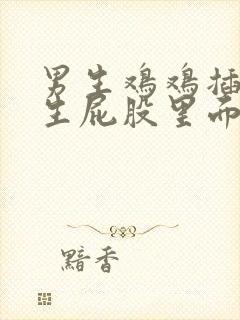 男生鸡鸡插
生屁股里而
黯香